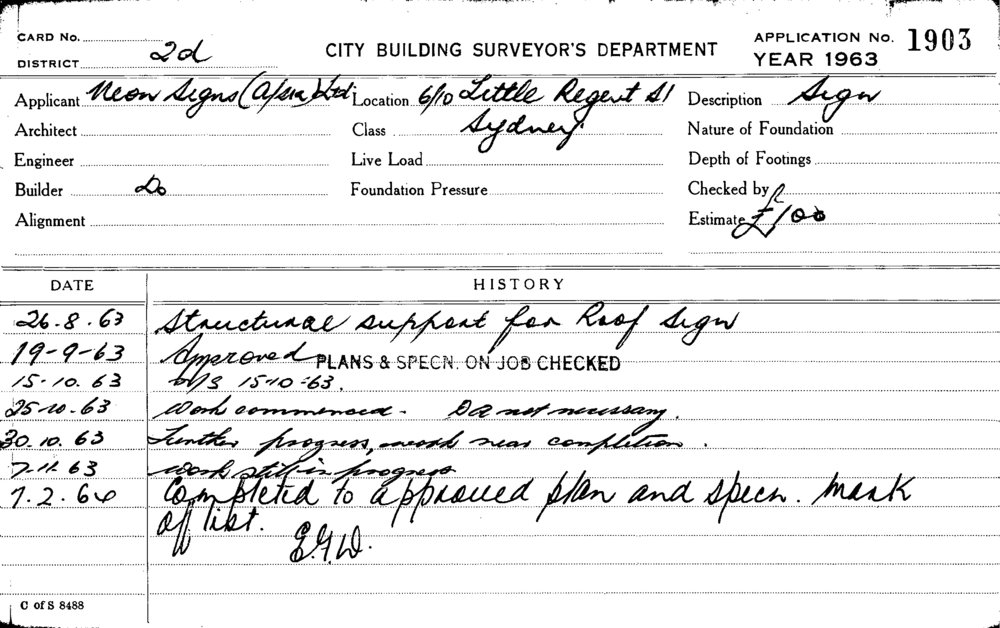 CARD No.
DISTRICT 2d
CITY BUILDING SURVEYOR'S DEPARTMENT
APPLICATION No. 1903
YEAR 1963
Applicant Neon Signs (A/sia) Ltd Location 6/10 Little Regent St Description Sign
Architect Class Sydney. Nature of Foundation
Engineer Live Load Depth of Footings
Builder Do Foundation Pressure Checked by
Alignment Estimate £100
DATE HISTORY
26.8.63 Structural support for Roof Sign
19-9-63 Approved PLANS & SPECN. ON JOB CHECKED
15-10.63 15-10-63.
25-10.63 Work commenced. DA not necessary.
30.10.63 Further progress, work near completion.
7.11.63 work still in progress
7.2.64 Completed to approved plan and specn. Mark
off list.
E.G.W.
C of S 8488